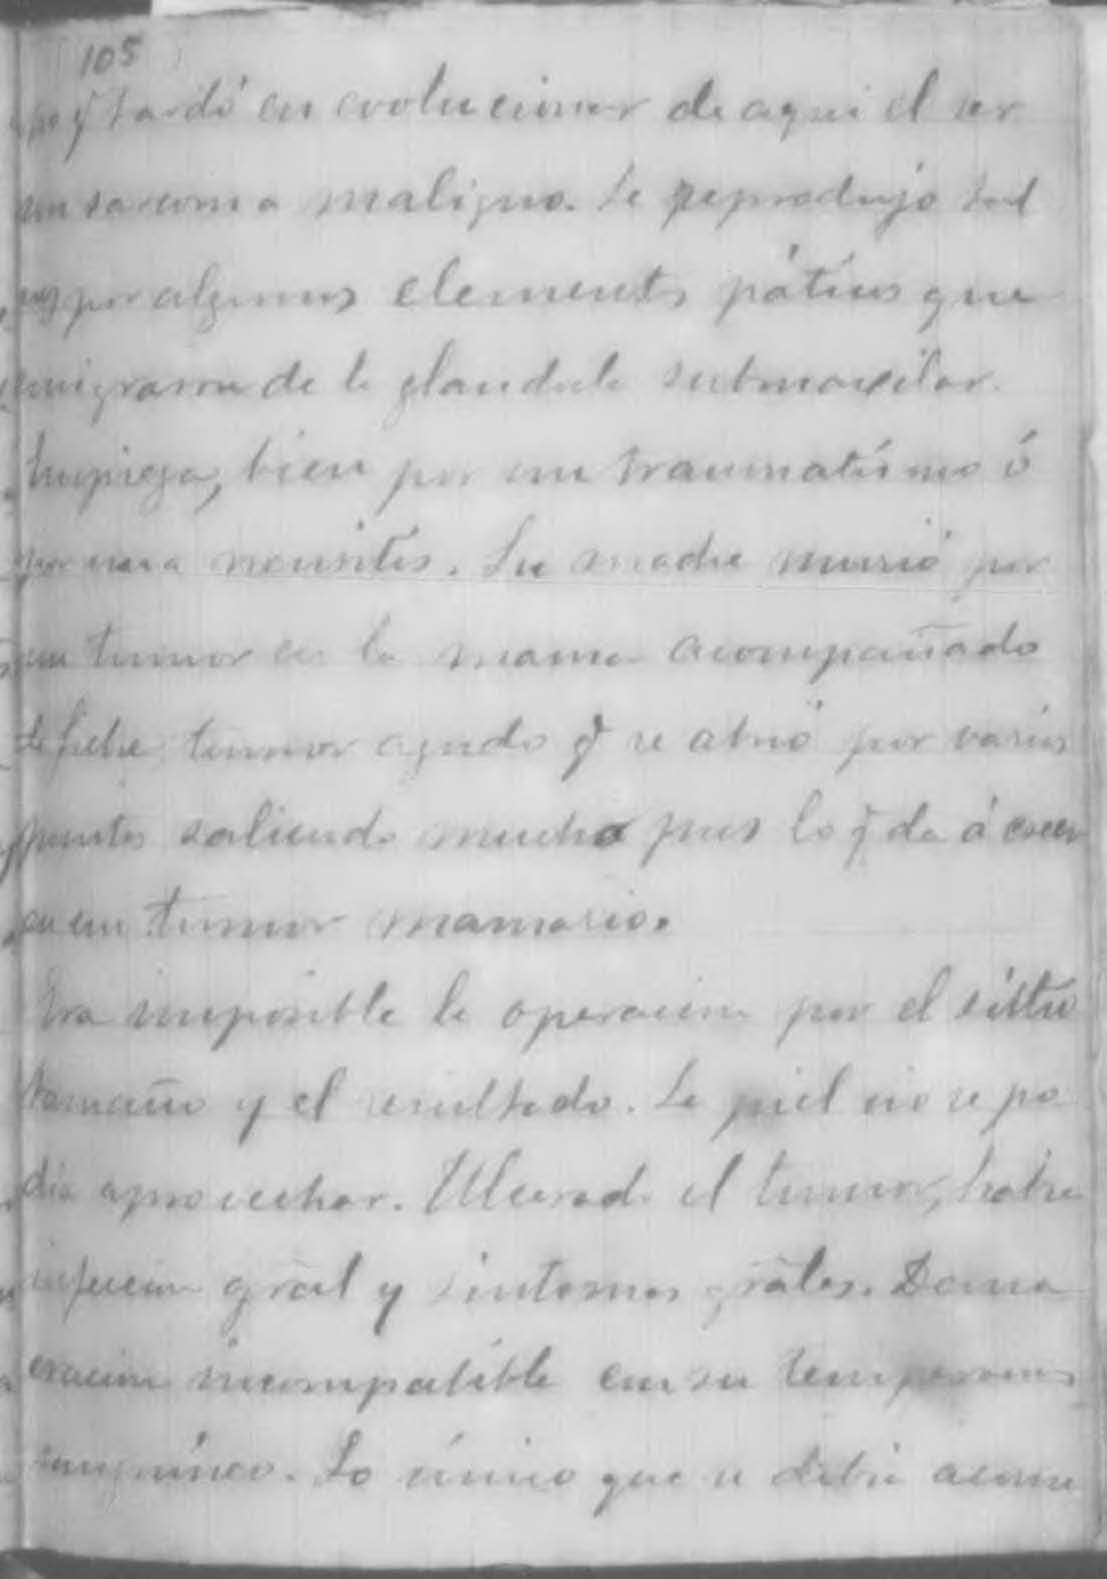 105
po q̃ tardó en evolucionar de aqui el ser
un sarcoma maligno. Se reprodujo tal
vez por algunos elements que
emigraron de la glandula submaxilar.
Empieza, bien por un traumatismo ó
por una. Su madre murió por
un tumor en la mama acompañado
de fiebre, tumor agudo q̃ se abrió por varios
puntos saliendo mucho pus lo q̃ da á creer
en un tumor mamario.
Era imposible la operacion por el sittio
tamaño y el resultado. La piel no se po
dia aprovechar. Ulcerado el tumor, habia
infeccion gral y sintomas grales. Dema
cracion incompatible con su
sanguineo. Lo único que se debia